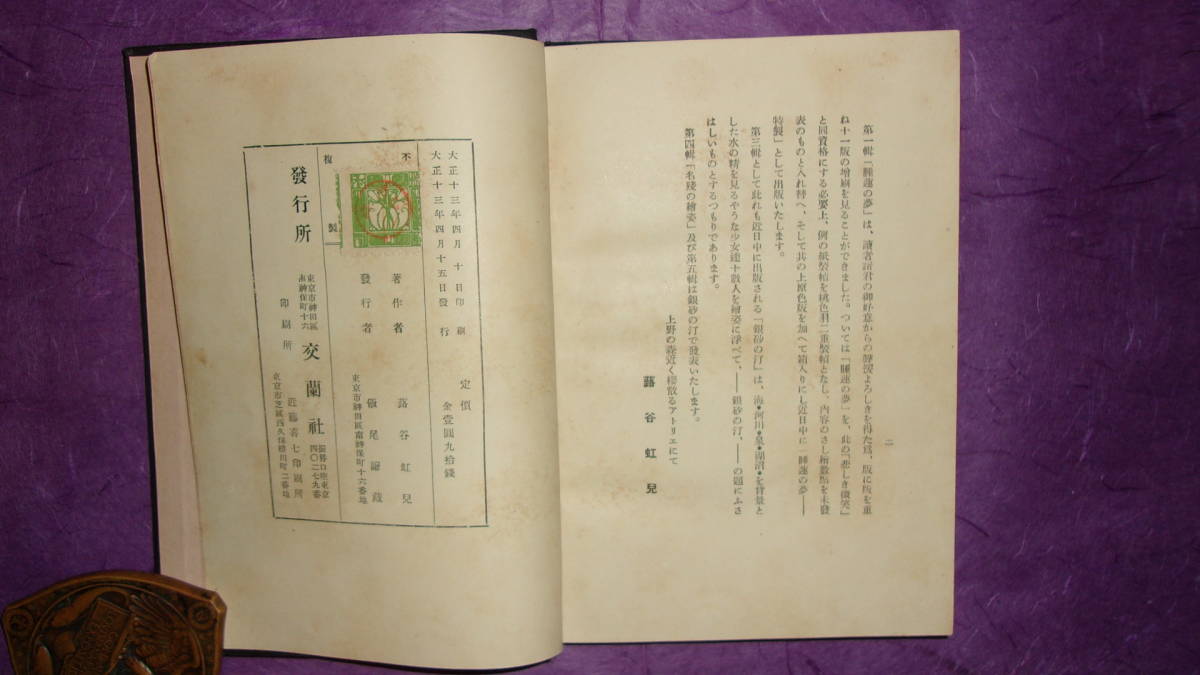 二
第一輯「睡蓮の夢」は、讀者諸君の御好意からの聲援よろしきを得た爲、版に版を重
ね十一版の增刷を見ることができました。ついては「睡蓮の夢」を、此の「悲しき微笑」
と同資格にする必要上、例の紙裝幀を桃色羽二重裝幀となし、内容のさし繪數點を未發
表のものと入れ替へ、そして其の上原色版を加へて箱入りにし近日中に「睡蓮の夢――
特製」として出版いたします。
第三輯として此れも近日中に出版される「銀砂の汀」は、海・河川・泉・湖沼・を背景と
した水の精を見るやうな少女達十數人を繪姿に浮べて、――銀砂の汀、――の題にふさ
はしいものとするつもりであります。
第四輯「名殘の繪姿」及び第五輯は銀砂の汀で發表いたします。
上野の森近く櫻散るアトリエにて
蕗谷虹兒
大正十三年四月十日印刷
大正十三年四月十五日發行
定價
金壹圓九拾錢
不複製
著作者 蕗谷虹兒
發行者
東京市神田區南神保町十六番地
飯尾謙藏
發行所
東京市神田區
南神保町十六
交蘭社
振替口座東京
四〇二七九番
印刷所
東京市芝區西久保櫻田町二番地
近藤喜七印刷所